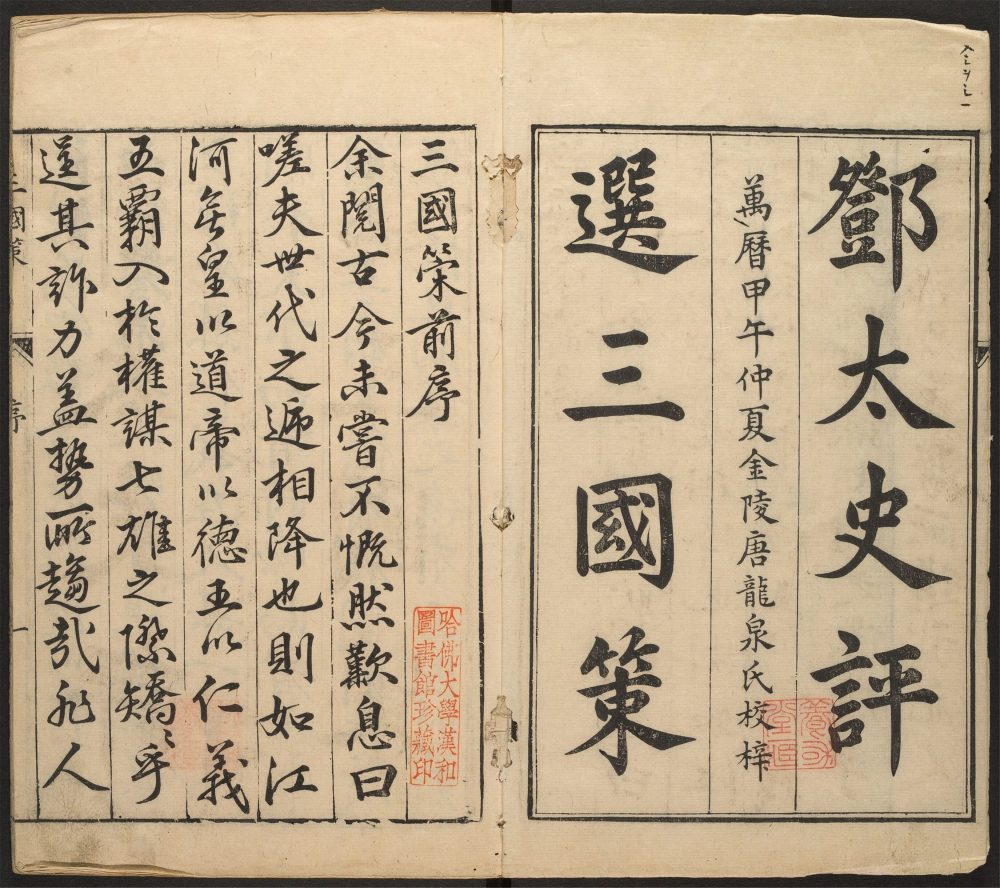 鄧太史評
萬曆甲午仲夏金陵唐龍泉氏校梓
選三國策
三國策前序
余閱古今未嘗不慨然歎息曰
嗟夫世代之遞相降也則如江
河矣皇以道帝以德王以仁義
五霸入於權謀七雄之際矯〻乎
逞其詐力盖勢所趨哉非人
三國策 序 一
哈佛大學漢和
圖書館珍藏印